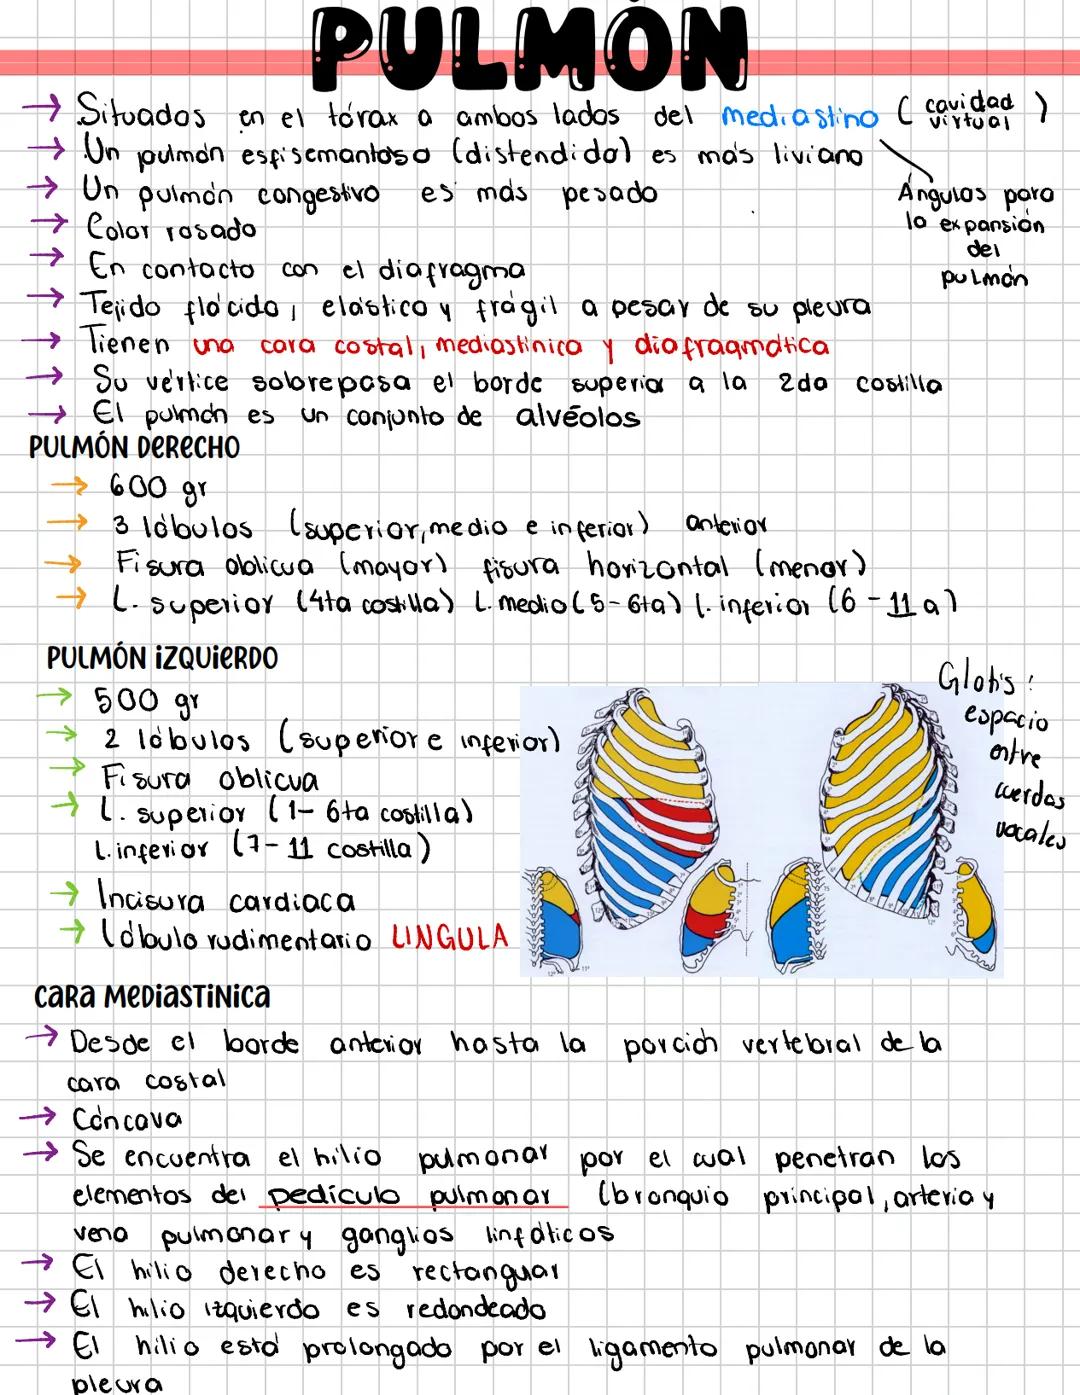 PULMÓN
→ Situados en el tórax a ambos lados del mediastino ( cavidad virtual )
→ Un pulmón esfisemantoso (distendido) es más liviano
→ Un pulmón congestivo es más pesado
Ángulos para
la expansión
del
pulmón
→ Color rosado
→ En contacto con el diafragma
→ Tejido flácido, elástico y frágil a pesar de su pleura
→ Tienen una cara costal, mediastínica y diafragmática
→ Su vértice sobrepasa el borde superior a la 2da costilla
→ El pulmón es un conjunto de alvéolos
PULMÓN DERECHO
→ 600 gr
→ 3 lóbulos (superior, medio e inferior) anterior
→ Fisura oblicua (mayor) fisura horizontal (menor)
→ L. superior (4ta costilla) L. medio (5-6ta) L. inferior (6-11a)
PULMÓN IZQUIERDO
→ 500 gr
→ 2 lóbulos (superior e inferior)
→ Fisura oblicua
→ L. superior (1-6ta costilla)
L. inferior (7-11 costilla)
→ Incisura cardiaca
→ Lóbulo rudimentario LINGULA
Glotis:
espacio
entre
cuerdas
vocales
CARA MEDIASTINICA
→ Desde el borde anterior hasta la porción vertebral de la
cara costal
→ Cóncava
→ Se encuentra el hilio pulmonar por el cual penetran los
elementos del pedículo pulmonar (bronquio principal, arteria y
vena pulmonar y ganglios linfáticos
→ El hilio derecho es rectangular
→ El hilio izquierdo es redondeado
→ El hilio está prolongado por el ligamento pulmonar de la
pleura